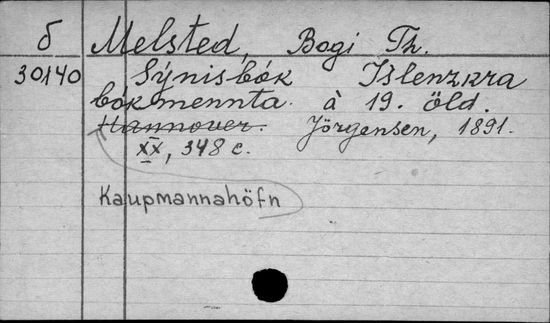 б Melsted, Bogi Th.
30140 Sýnisbók Islenzkra
bókmennta à 19. öld.
Hannover. Jörgensen, 1891.
XX, 348 c.
Kaupmannahöfn